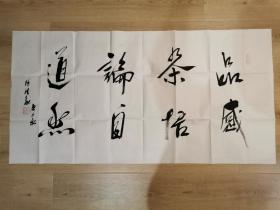 品茶論道
感悟自然